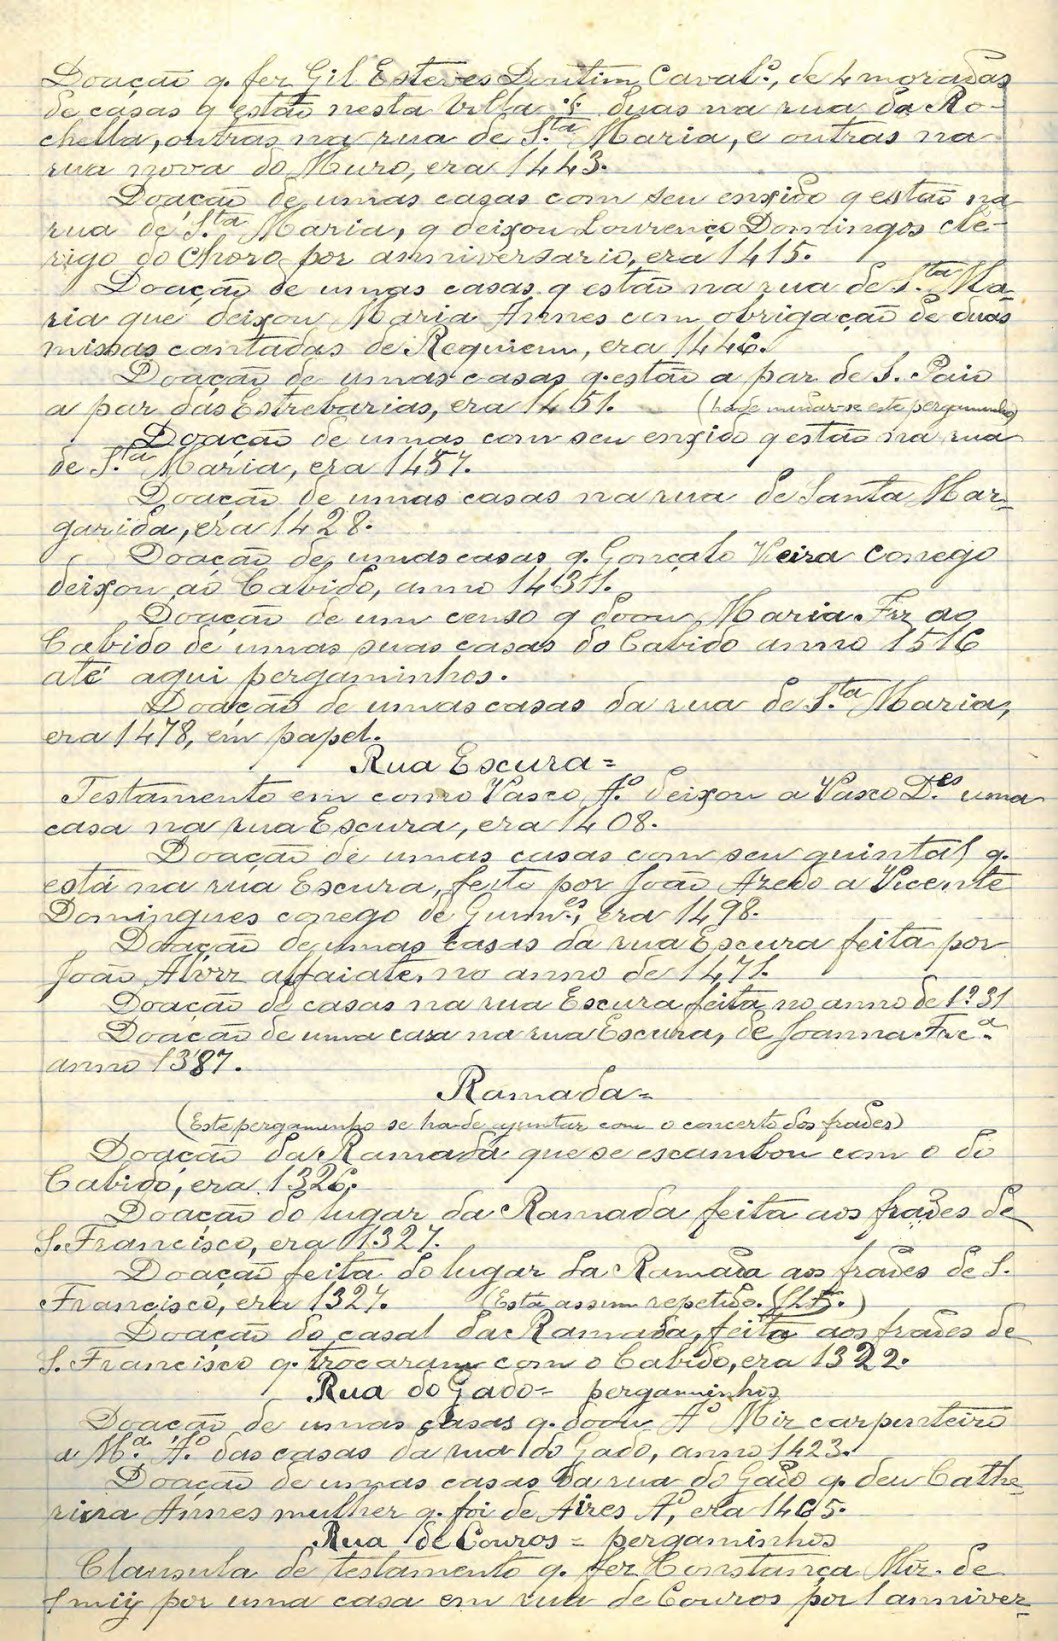 Doação q. fez Gil Esteves Doutim, Caval.º, de 4 moradas
de casas q estão nesta Villa :s: duas na rua da Ro-
chella, outras na rua de S.ta Maria, e outras na
rua nova do Muro, era 1443.
Doação de umas casas com seu enxido q estão na
rua de S.ta Maria, q deixou Lourenço Domingos cle-
rigo do Choro por anniversario, era 1415.
Doação de umas casas q estão na rua de S.ta Ma-
ria que deixou Maria Annes com obrigação de duas
missas cantadas de Requiem, era 1446.
Doação de umas casas q. estão a par de S. Paio
a par das Estrebarias, era 1451. (hade mudar-se este pergaminho)
Doação de umas com seu enxido q estão na rua
de S.ta Maria, era 1457.
Doação de umas casas na rua de Santa Mar-
garida, era 1428.
Doação de umas casas q. Gonçalo Vieira conego
deixou ao Cabido, anno 14311.
Doação de um censo q doou Maria Frz ao
Cabido de umas suas casas do Cabido anno 1516
até aqui pergaminhos.
Doação de umas casas da rua de S.ta Maria,
era 1478, em papel.
Rua Escura =
Testamento em como Vasco A.º deixou a Vasco D.es uma
casa na rua Escura, era 1408.
Doação de umas casas com seu quintal q.
está na rua Escura, feito por João Azedo a Vicente
Domingues conego de Guim.es, era 1498.
Doação de umas casas da rua Escura feita por
João Alvrz alfaiate, no anno de 1471.
Doação de casas na rua Escura feita no anno de 1?31
Doação de uma casa na rua Escura, de Joanna Frc.ª
anno 1387.
Ramada =
(Este pergaminho se hade ajuntar com o concerto dos frades)
Doação da Ramada que se escambou com o do
Cabido, era 1326.
Doação do lugar da Ramada feita aos frades de
S. Francisco, era 1327.
Doação feita do lugar da Ramada aos frades de S.
Francisco, era 1327. (Está assim repetido.
Doação do casal da Ramada, feita aos frades de
S. Francisco q. trocaram com o Cabido, era 1322.
Rua do Gado = pergaminhos
Doação de umas casas q. doou A.º Miz carpenteiro
a M.ª A.º das casas da rua do Gado, anno 1423.
Doação de umas casas da rua do Gado q. deu Cathe-
rina Annes mulher q. foi de Aires A.º, era 1465.
Rua de Couros = pergaminhos
Clausula de testamento q. fez Constança Miz. de
por uma casa em rua de Couros por 1 anniver-